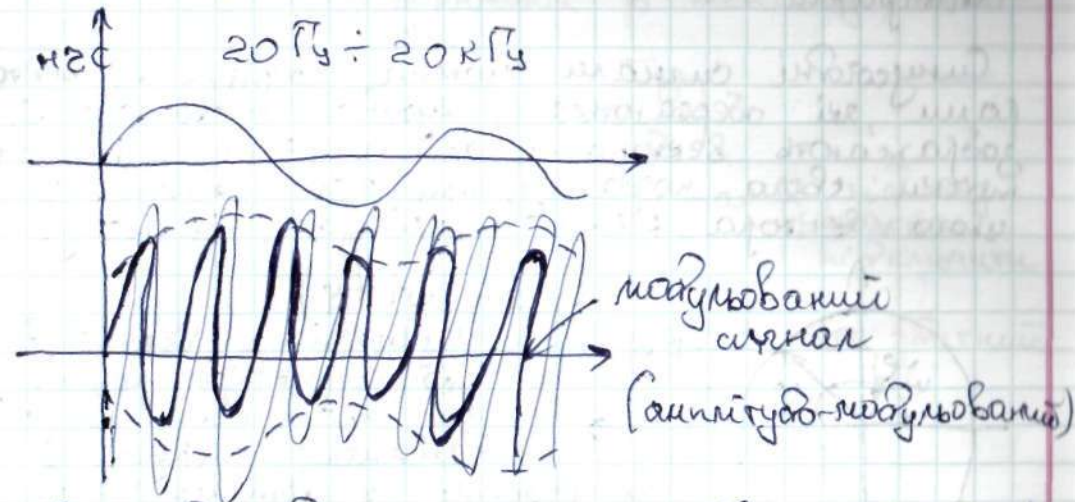 нгс
20 Гц ÷ 20 кГц
модульований
сигнал
(амплітудо-модульований)